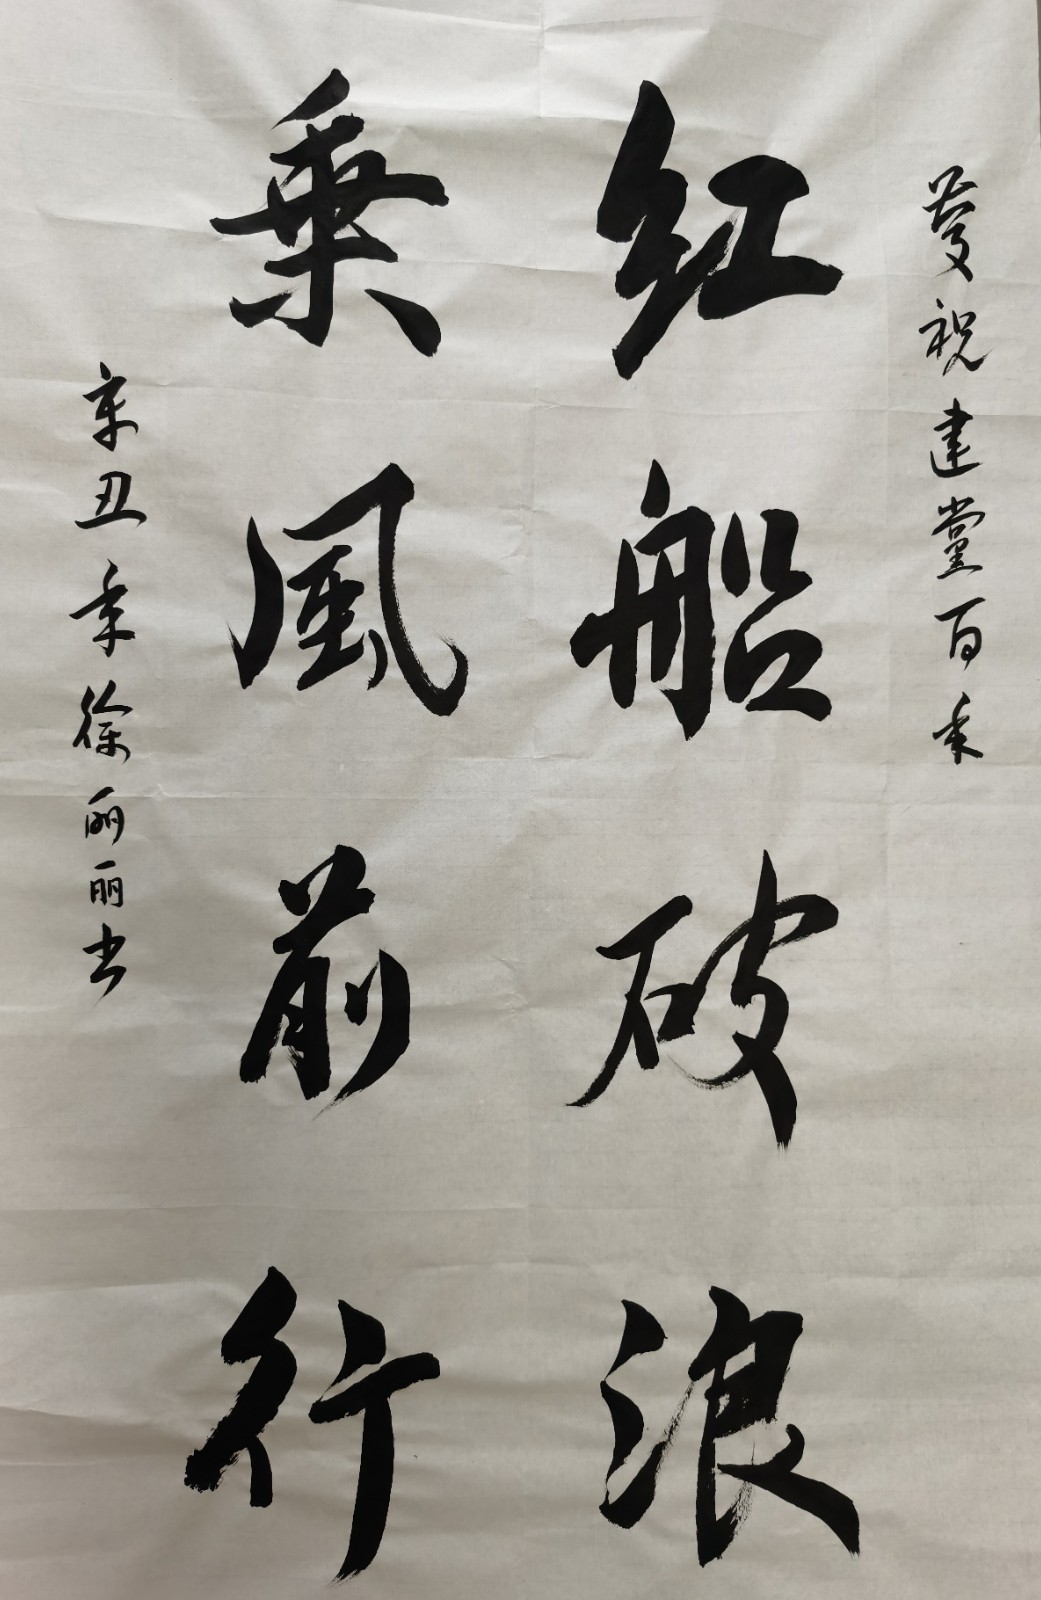 慶祝建堂百年
红船破浪
乘風前行
辛丑年徐丽丽书